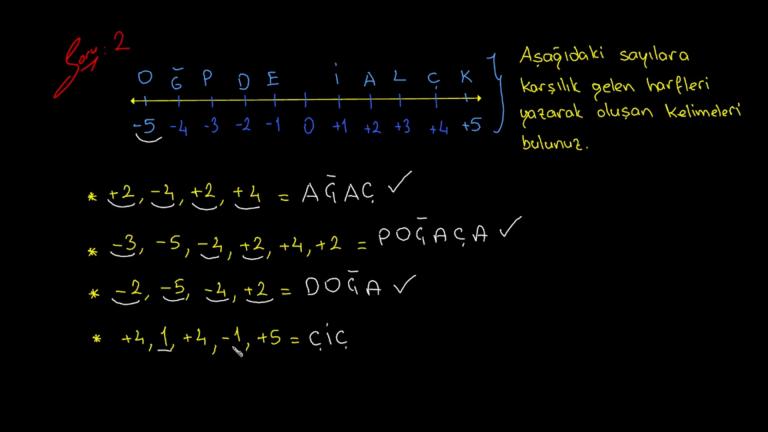 Soru: 2
O Ğ P D E İ A L Ç K
-5 -4 -3 -2 -1 0 +1 +2 +3 +4 +5
Aşağıdaki sayılara
karşılık gelen harfleri
yazarak oluşan kelimeleri
bulunuz.
* +2, -4, +2, +4 = AĞAÇ ✓
* -3, -5, -4, +2, +4, +2 = POĞAÇA ✓
* -2, -5, -4, +2 = DOĞA ✓
* +4, 1, +4, -1, +5 = ÇİÇ